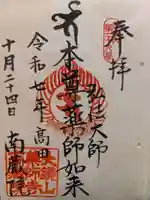 奉拝
弘法大師
本尊薬師如来
令和七年高田
十月二十四日
南蔵院